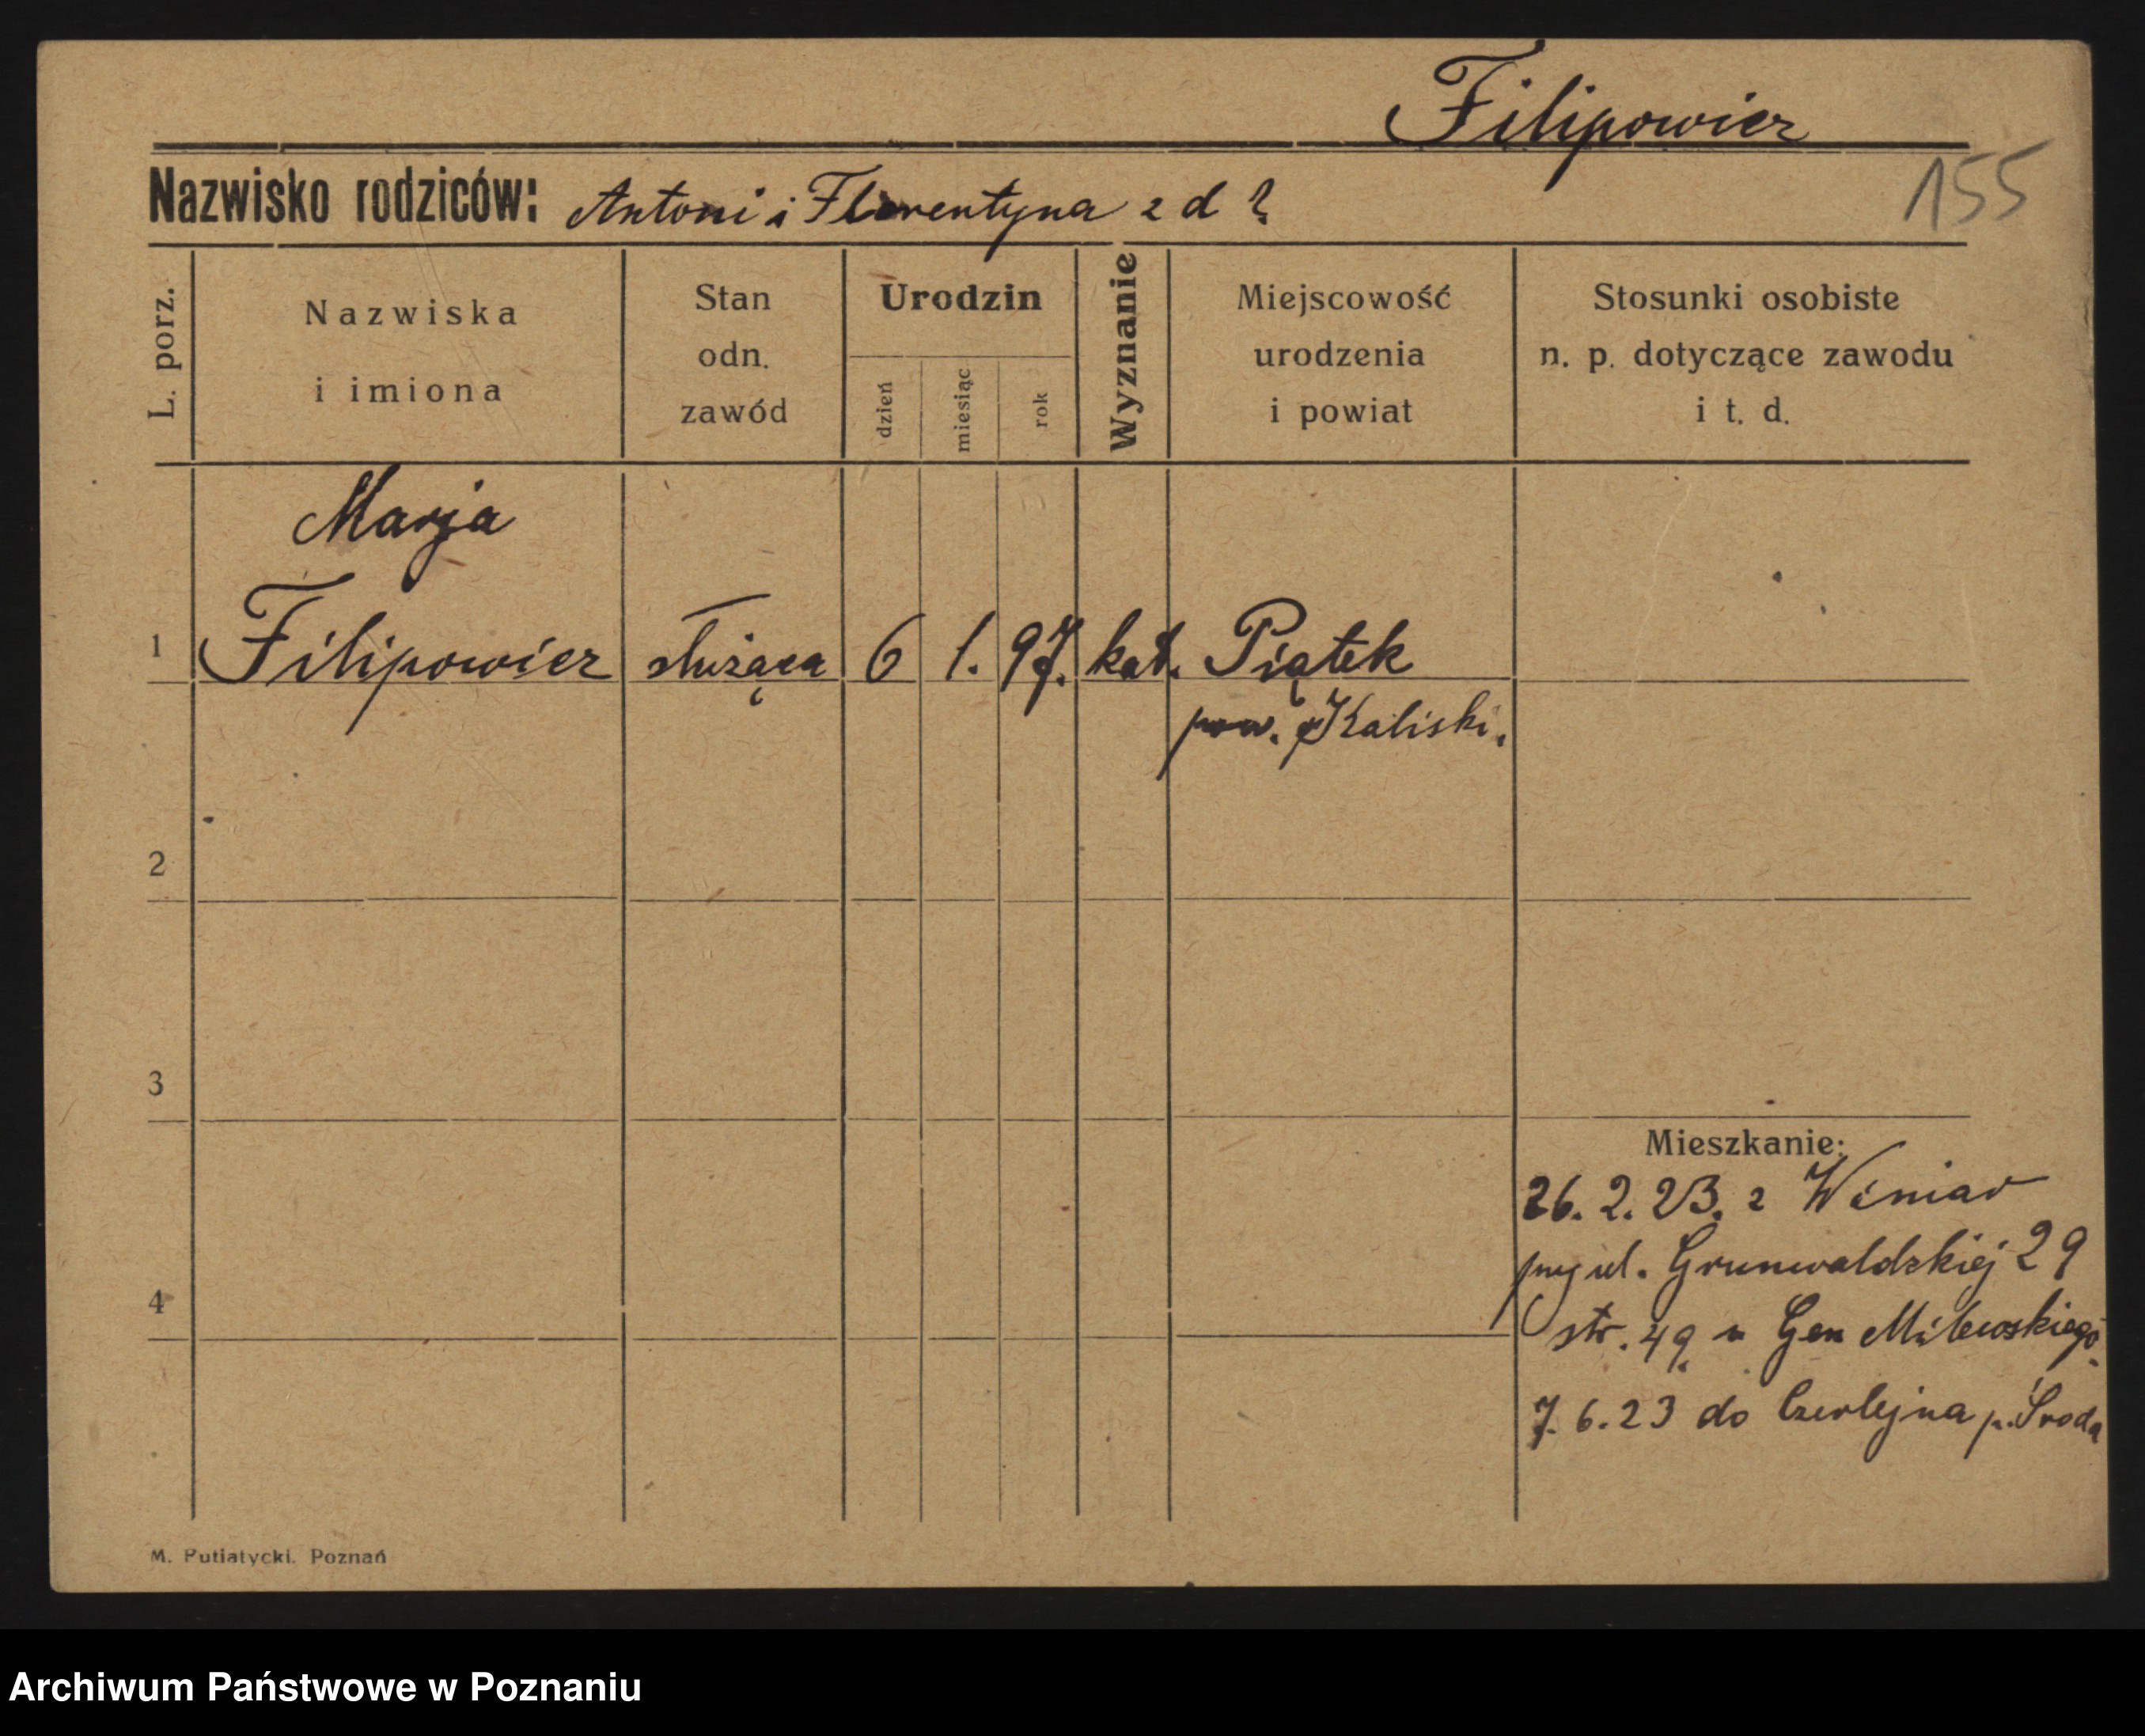 Filipowicz
155
Nazwisko rodziców: Antoni i Florentyna z d ?
L. porz.
Nazwiska
i imiona
Stan
odn.
zawód
Urodzin
dzień
miesiąc
rok
Wyznanie
Miejscowość
urodzenia
i powiat
Stosunki osobiste
n. p. dotyczące zawodu
i t. d.
Marja
1 Filipowicz służąca 6 1. 97. kat. Piątek
pow. Kaliski.
2
3
Mieszkanie:
26. 2. 23. z Winiar
przy ul. Grunwaldzkiej 29
4
str. 49 u Gen Milewskiego
7. 6. 23 do Czerlejna p. Środa
M. Putiatycki. Poznań
Archiwum Państwowe w Poznaniu